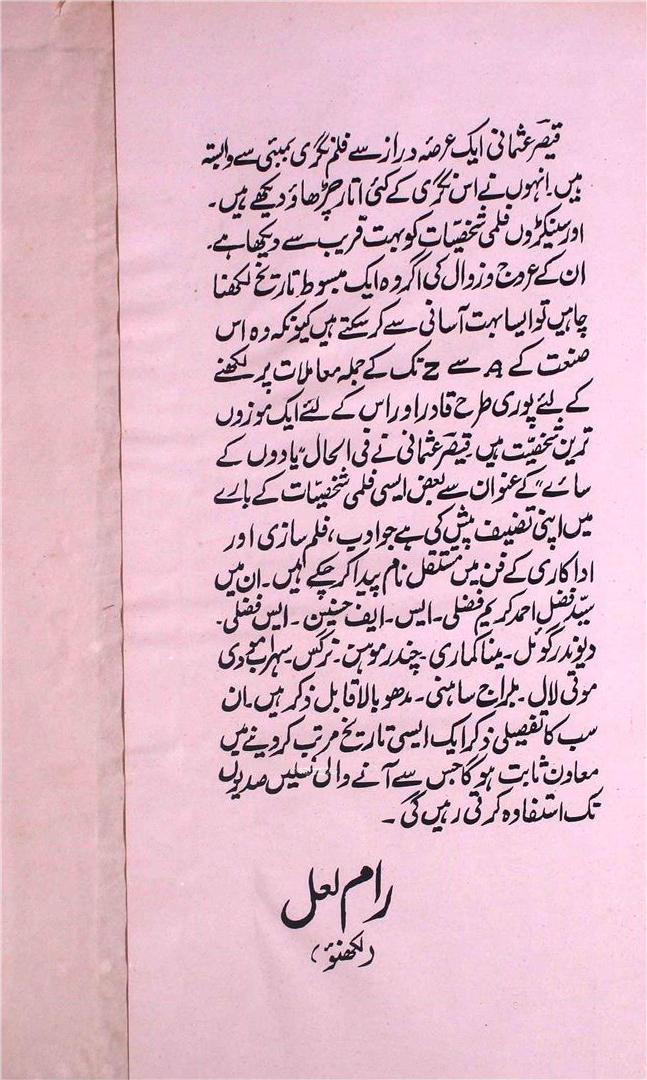 قیصر عثمانی ایک عرصۂ دراز سے فلم نگری بمبئی سے وابستہ
ہیں۔ انہوں نے اس نگری کے کئی اتار چڑھاؤ دیکھے ہیں۔
اور سینکڑوں فلمی شخصیّات کو بہت قریب سے دیکھا ہے۔
ان کے عروج و زوال کی اگر وہ ایک مبسوط تاریخ لکھنا
چاہیں تو ایسا بہت آسانی سے کر سکتے ہیں کیونکہ وہ اس
صنعت کے A سے Z تک کے جملہ معاملات پر لکھنے
کے لئے پوری طرح قادر اور اس کے لئے ایک موزوں
ترین شخصیّت ہیں۔ قیصر عثمانی نے فی الحال "یادوں کے
سائے" کے عنوان سے بعض ایسی فلمی شخصیّات کے بارے
میں اپنی تصنیف پیش کی ہے جو ادب، فلم سازی اور
اداکاری کے فن میں مستقل نام پیدا کر چکے ہیں۔ ان میں
سیّد فضل احمد کریم فضلی۔ ایس۔ ایف حسنین۔ ایس فضلی۔
دیوندر گوئل۔ مینا کماری۔ چندر موہن۔ نرگس۔ سہراب مودی
موتی لال۔ بلراج ساہنی۔ مدھوبالا قابل ذکر ہیں۔ ان
سب کا تفصیلی ذکر ایک ایسی تاریخ مرتب کر دینے میں
معاون ثابت ہوگا جس سے آنے والی نسلیں صدیوں
تک استفادہ کرتی رہیں گی۔
رام لعل
(لکھنؤ)